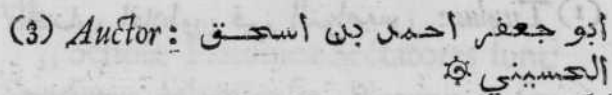 (3) Auctor: أبو جعفر احمد بن اسحق
الحسيني ۞